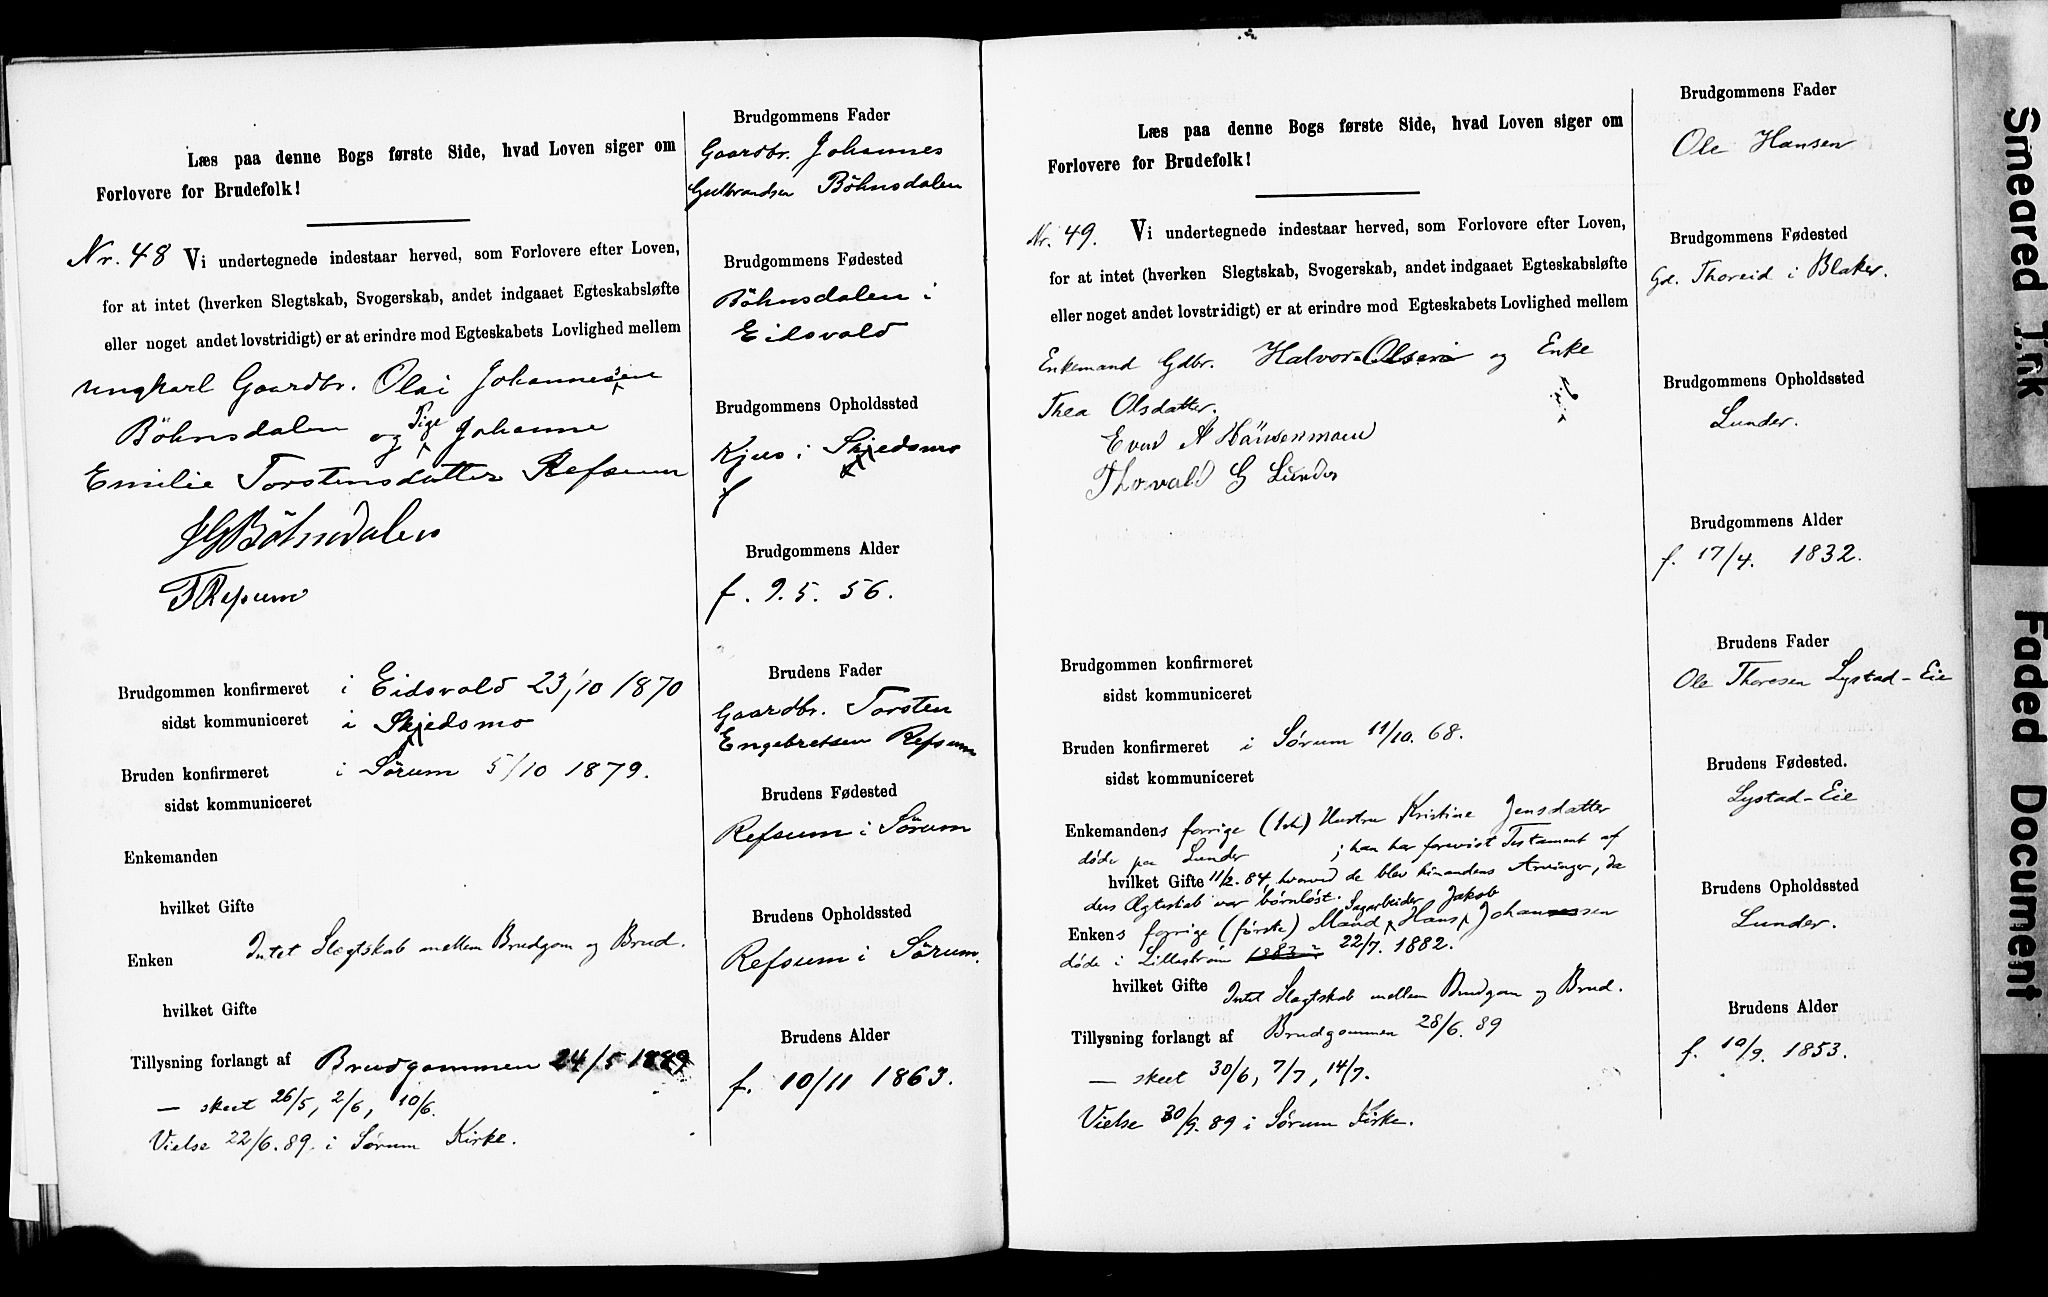 Læs paa denne Bogs første Side, hvad Loven siger om
Forlovere for Brudefolk!
Nr. 48 Vi undertegnede indestaar herved, som Forlovere efter Loven,
for at intet (hverken Slegtskab, Svogerskab, andet indgaaet Egteskabsløfte
eller noget andet lovstridigt) er at erindre mod Egteskabets Lovlighed mellem
Ungkarl Gaardbr. Olai Johannesen
Böhnsdalen og Pige Johanne
Emilie Torstensdatter Refsum
JGBöhnsdalen
TRefsum
Brudgommen konfirmeret i Eidsvold 23/10 1870
sidst kommuniceret i Skjedsmo
Bruden konfirmeret i Sörum 5/10 1879.
sidst kommuniceret
Enkemanden
hvilket Gifte
Enken Intet Slegtskab mellem Brudgom og Brud.
hvilket Gifte
Tillysning forlangt af Brudgommen 24/5 1889
— skeet 26/5, 2/6, 10/6.
Vielse 22/6. 89. i Sörum Kirke.
Brudgommens Fader
Gaardbr. Johannes
Gulbrandsen Böhnsdalen
Brudgommens Fødested
Böhnsdalen i
Eidsvold
Brudgommens Opholdssted
Kjus i Skjedsmo
Brudgommens Alder
f. 9. 5. 56.
Brudens Fader
Gaardbr. Torsten
Engebretsen Refsum
Brudens Fødested
Refsum i Sörum
Brudens Opholdssted
Refsum i Sörum.
Brudens Alder
f. 10/11 1863.
Læs paa denne Bogs første Side, hvad Loven siger om
Forlovere for Brudefolk!
Nr. 49. Vi undertegnede indestaar herved, som Forlovere efter Loven,
for at intet (hverken Slegtskab, Svogerskab, andet indgaaet Egteskabsløfte
eller noget andet lovstridigt) er at erindre mod Egteskabets Lovlighed mellem
Enkemand Gdbr. Halvor Olsen og Enke
Thea Olsdatter.
Thorvald G Lunder
Brudgommen konfirmeret
sidst kommuniceret
Bruden konfirmeret i Sörum 11/10. 68.
sidst kommuniceret
Enkemandens forrige (1ste) Hustru Kristine Jensdatter
døde paa Lunder ; han har forevist Testament af
hvilket Gifte 11/2. 84, hvorved de blev hinandens Arvinger, da
deres Ægteskab var börnlöst. Sagarbeider Jakob
Enkens forrige (förste) Mand Hans Johannessen
døde i Lilleström 1883 22/7. 1882.
hvilket Gifte Intet Slegtskab mellem Brudgom og Brud.
Tillysning forlangt af Brudgommen 28/6. 89
— skeet 30/6, 7/7, 14/7.
Vielse 30/9. 89 i Sörum Kirke.
Brudgommens Fader
Ole Hansen
Brudgommens Fødested
Gd. Thoreid i Blaker.
Brudgommens Opholdssted
Lunder.
Brudgommens Alder
f. 17/4. 1832.
Brudens Fader
Ole Thoresen Lystad-Eie
Brudens Fødested.
Lystad-Eie
Brudens Opholdssted
Lunder.
Brudens Alder
f. 10/9. 1853.
Smeared Ink
Faded Document